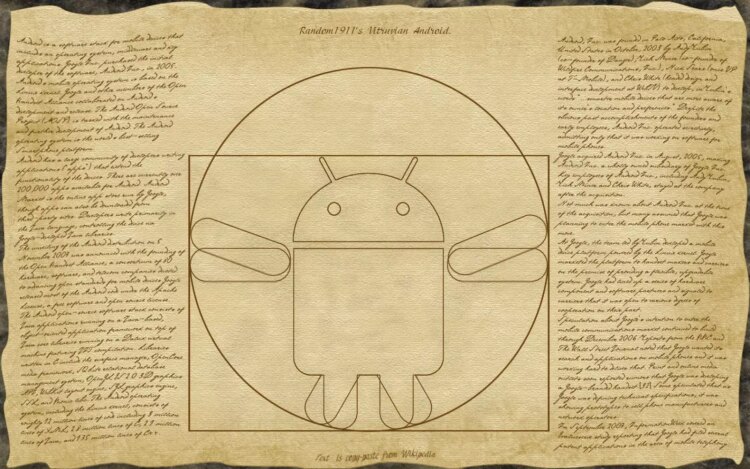 Random1911's Vitruvian Android.
Android is a software stack for mobile devices that
includes an operating system, middleware and key
applications. Google Inc. purchased the initial
developer of the software, Android Inc., in 2005.
Android's mobile operating system is based on the
Linux kernel. Google and other members of the Open
Handset Alliance collaborated on Android's
development and release. The Android Open Source
Project (AOSP) is tasked with the maintenance
and further development of Android. The Android
operating system is the world's best-selling
Smartphone platform.
Android has a large community of developers writing
applications ("apps") that extend the
functionality of the devices. There are currently over
100,000 apps available for Android. Android
Market is the online app store run by Google,
though apps can also be downloaded from
third-party sites. Developers write primarily in
the Java language, controlling the device via
Google-developed Java libraries.
The unveiling of the Android distribution on 5
November 2007 was announced with the founding of
the Open Handset Alliance, a consortium of 80
hardware, software, and telecom companies devoted
to advancing open standards for mobile devices. Google
released most of the Android code under the Apache
License, a free software and open source license.
The Android open-source software stack consists of
Java applications running on a Java-based,
object-oriented application framework on top of
Java core libraries running on a Dalvik virtual
machine featuring JIT compilation. Libraries
written in C include the surface manager, OpenCore
media framework, SQLite relational database
management system, OpenGL ES 2.0 3D graphics
API, WebKit layout engine, SGL graphics engine,
SSL, and Bionic libc. The Android operating
system, including the Linux kernel, consists of
roughly 12 million lines of code including 3 million
lines of XML, 2.8 million lines of C, 2.1 million
lines of Java, and 1.75 million lines of C++.
Android, Inc. was founded in Palo Alto, California,
United States in October, 2003 by Andy Rubin
(co-founder of Danger), Rich Miner (co-founder of
Wildfire Communications, Inc.), Nick Sears (once VP
at T-Mobile), and Chris White (headed design and
interface development at WebTV) to develop, in Rubin's
words "...smarter mobile devices that are more aware of
its owner's location and preferences." Despite the
obvious past accomplishments of the founders and
early employees, Android Inc. operated secretively,
admitting only that it was working on software for
mobile phones.
Google acquired Android Inc. in August, 2005, making
Android Inc. a wholly owned subsidiary of Google Inc.
Key employees of Android Inc., including Andy Rubin,
Rich Miner and Chris White, stayed at the company
after the acquisition.
Not much was known about Android Inc. at the time
of the acquisition, but many assumed that Google was
planning to enter the mobile phone market with this
move.
At Google, the team led by Rubin developed a mobile
device platform powered by the Linux kernel. Google
marketed the platform to handset makers and carriers
on the premise of providing a flexible, upgradable
system. Google had lined up a series of hardware
component and software partners and signaled to
carriers that it was open to various degrees of
cooperation on their part.
Speculation about Google's intention to enter the
mobile communications market continued to build
through December 2006. Reports from the BBC and
The Wall Street Journal noted that Google wanted its
search and applications on mobile phones and it was
working hard to deliver that. Print and online media
outlets soon reported rumors that Google was developing
a Google-branded handset. Some speculated that as
Google was defining technical specifications, it was
showing prototypes to cell phone manufacturers and
network operators.
In September 2007, InformationWeek covered an
Evalueserve study reporting that Google had filed several
patent applications in the area of mobile telephony.
Text is copy-paste from Wikipedia